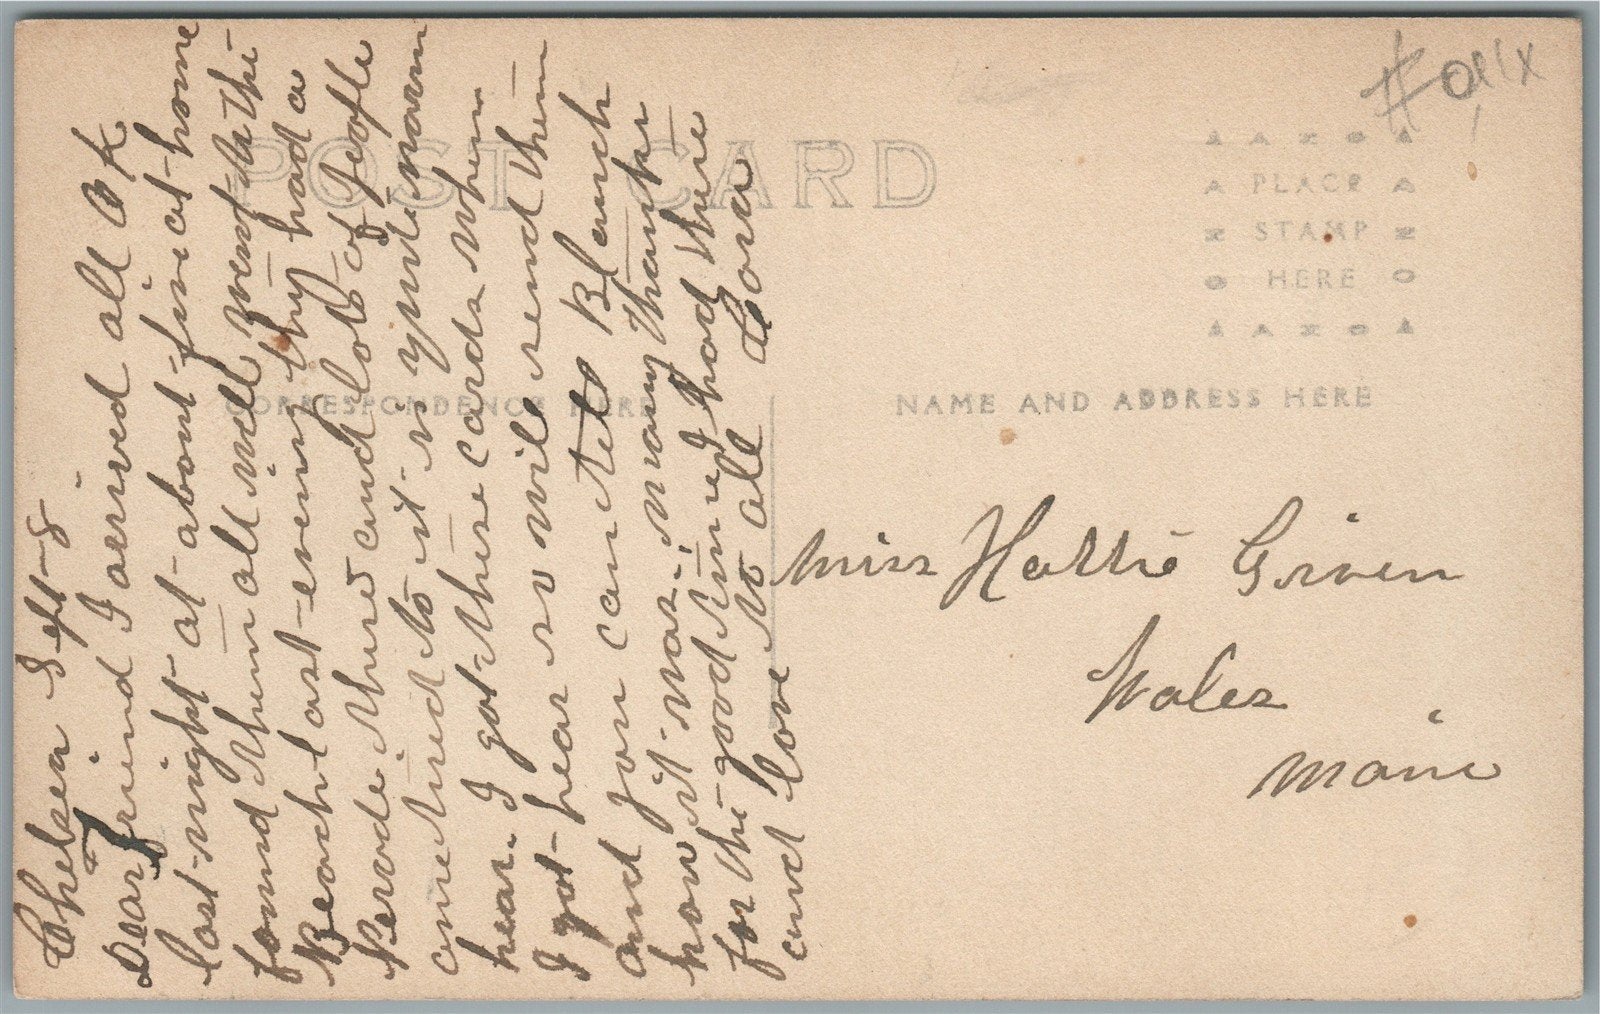 POST CARD
CORRESPONDENCE HERE
NAME AND ADDRESS HERE
PLACE
STAMP
HERE
AZO
Chelsea Sept-8
Dear Friend I arrived all O K
last-night at about-five at-home
found them all well went to the
Beach last-evening they had a
there and lots of People
and it is quite warm
hear. I got these cards when
I got-hear so will send them
and you can tell Blanch
how it was. many thanks
for the good time I had there
and love to all Dora
Miss Hattie Given
Wales
Maine